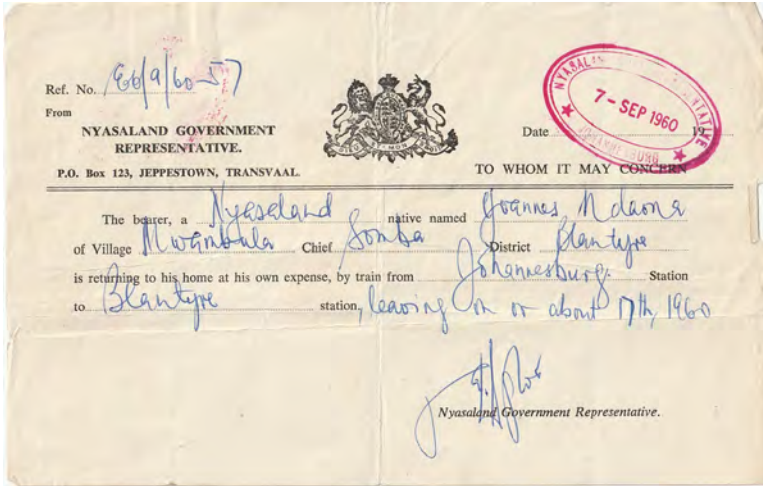 Ref. No. E6/9/60-57
From
NYASALAND GOVERNMENT
REPRESENTATIVE.
P.O. Box 123, JEPPESTOWN, TRANSVAAL.
DIEU ET MON DROIT
NYASALAND REPRESENTATIVE
7 - SEP 1960
JOHANNESBURG
Date 19
TO WHOM IT MAY CONCERN
The bearer, a Nyasaland native named Joannes Ndaona
of Village Mwambula Chief Somba District Blantyre
is returning to his home at his own expense, by train from Johannesburg. Station
to Blantyre station, leaving on or about 17th, 1960
Nyasaland Government Representative.